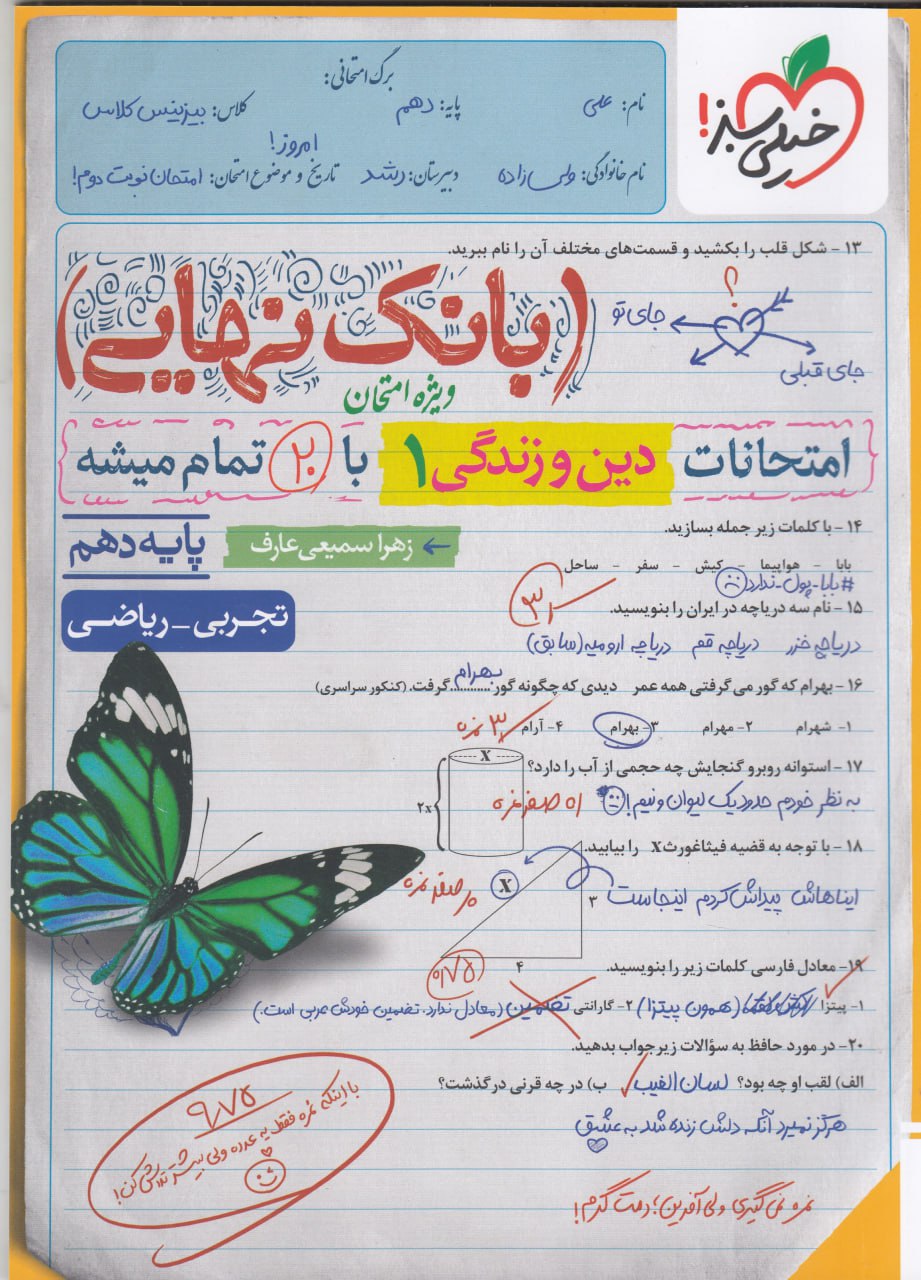 خیلی سبز!
برگ امتحانی:
نام: علی
پایه: دهم
کلاس: بیزینس کلاس
نام خانوادگی: ولی زاده
دبیرستان: رشد
تاریخ و موضوع امتحان: امتحان نوبت دوم! امروز!
۱۳ - شکل قلب را بکشید و قسمت‌های مختلف آن را نام ببرید.
؟
جای تو
جای قبلی
(بانک نهایی)
ویژه امتحان
امتحانات دین و زندگی ۱ با ۲۰ تمام میشه
۱۴ - با کلمات زیر جمله بسازید.
پایه دهم
زهرا سمیعی عارف
بابا - هواپیما - کیش - سفر - ساحل
#بابا-پول-ندارد
تجربی - ریاضی
۱۵ - نام سه دریاچه در ایران را بنویسید.
دریاچه خزر دریاچه قم دریاچه ارومیه (سابق)
۱۶ - بهرام که گور می‌گرفتی همه عمر دیدی که چگونه گور بهرام گرفت. (کنکور سراسری)
۱- شهرام ۲- مهرام ۳- بهرام ۴- آرام
۱۷ - استوانه روبرو گنجایش چه حجمی از آب را دارد؟
x
2x
به نظر خودم حدود یک لیوان و نیم!
۱۸ - با توجه به قضیه فیثاغورث x را بیابید.
x
۳
۴
ایناهاش پیداش کردم اینجاست
صفر نمره
۹/۷۵
۱۹- معادل فارسی کلمات زیر را بنویسید.
۱- پیتزا (همون پیتزا) ۲- گارانتی تضمین (معادل ندارد. تضمین خودش عربی است.)
۲۰- در مورد حافظ به سؤالات زیر جواب بدهید.
الف) لقب او چه بود؟ لسان الغیب ب) در چه قرنی درگذشت؟
هرگز نمیرد آنکه دلش زنده شد به عشق
۹/۷۵
با اینکه نمره فقط یه عدده ولی بیشتر تلاش کن!
نمره نمی‌گیری ولی آفرین؛ دمت گرم!